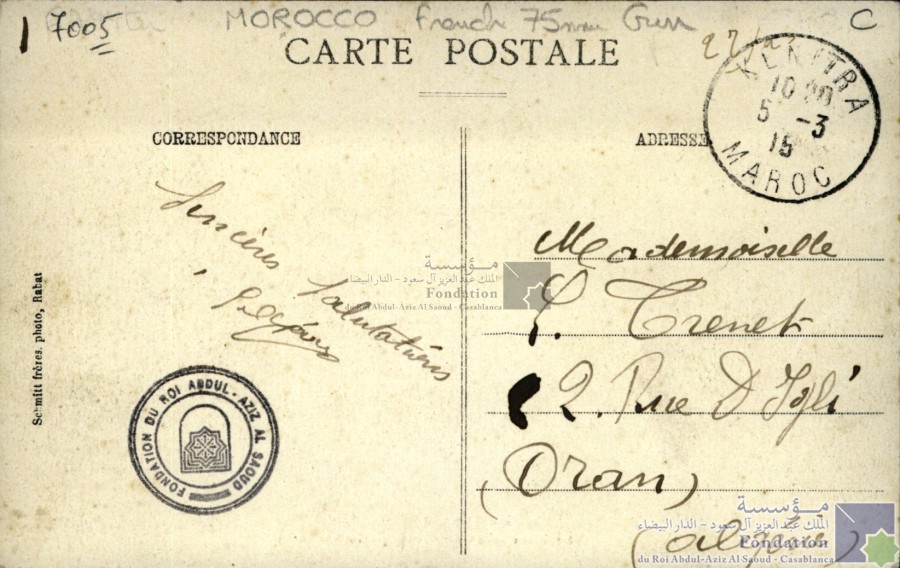 7005
MOROCCO French 75mm Gun
C
CARTE POSTALE
CORRESPONDANCE
ADRESSE
KENITRA
5 -3
15
MAROC
Sincères
Salutations
Mademoiselle
Trenet
2. Rue D'Igli
(Oran)
(Algérie)
Schmitt frères, photo, Rabat
FONDATION DU ROI ABDUL-AZIZ AL SAOUD
مؤسسة
الملك عبد العزيز آل سعود - الدار البيضاء
Fondation
du Roi Abdul-Aziz Al Saoud - Casablanca
مؤسسة
الملك عبد العزيز آل سعود - الدار البيضاء
Fondation
du Roi Abdul-Aziz Al Saoud - Casablanca